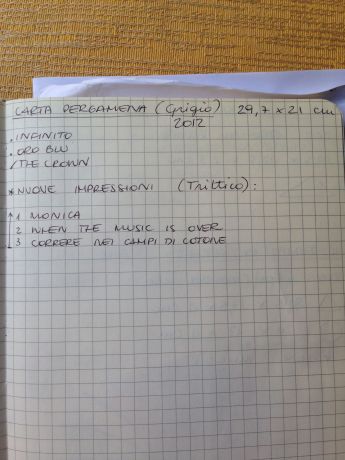 CARTA PERGAMENA (Grigio) 29,7 x 21 cm
2012
. INFINITO
. ORO BLU
✓ THE CROWN
* NUOVE IMPRESSIONI (Trittico):
1 MONICA
2 WHEN THE MUSIC IS OVER
3 CORRERE NEI CAMPI DI COTONE